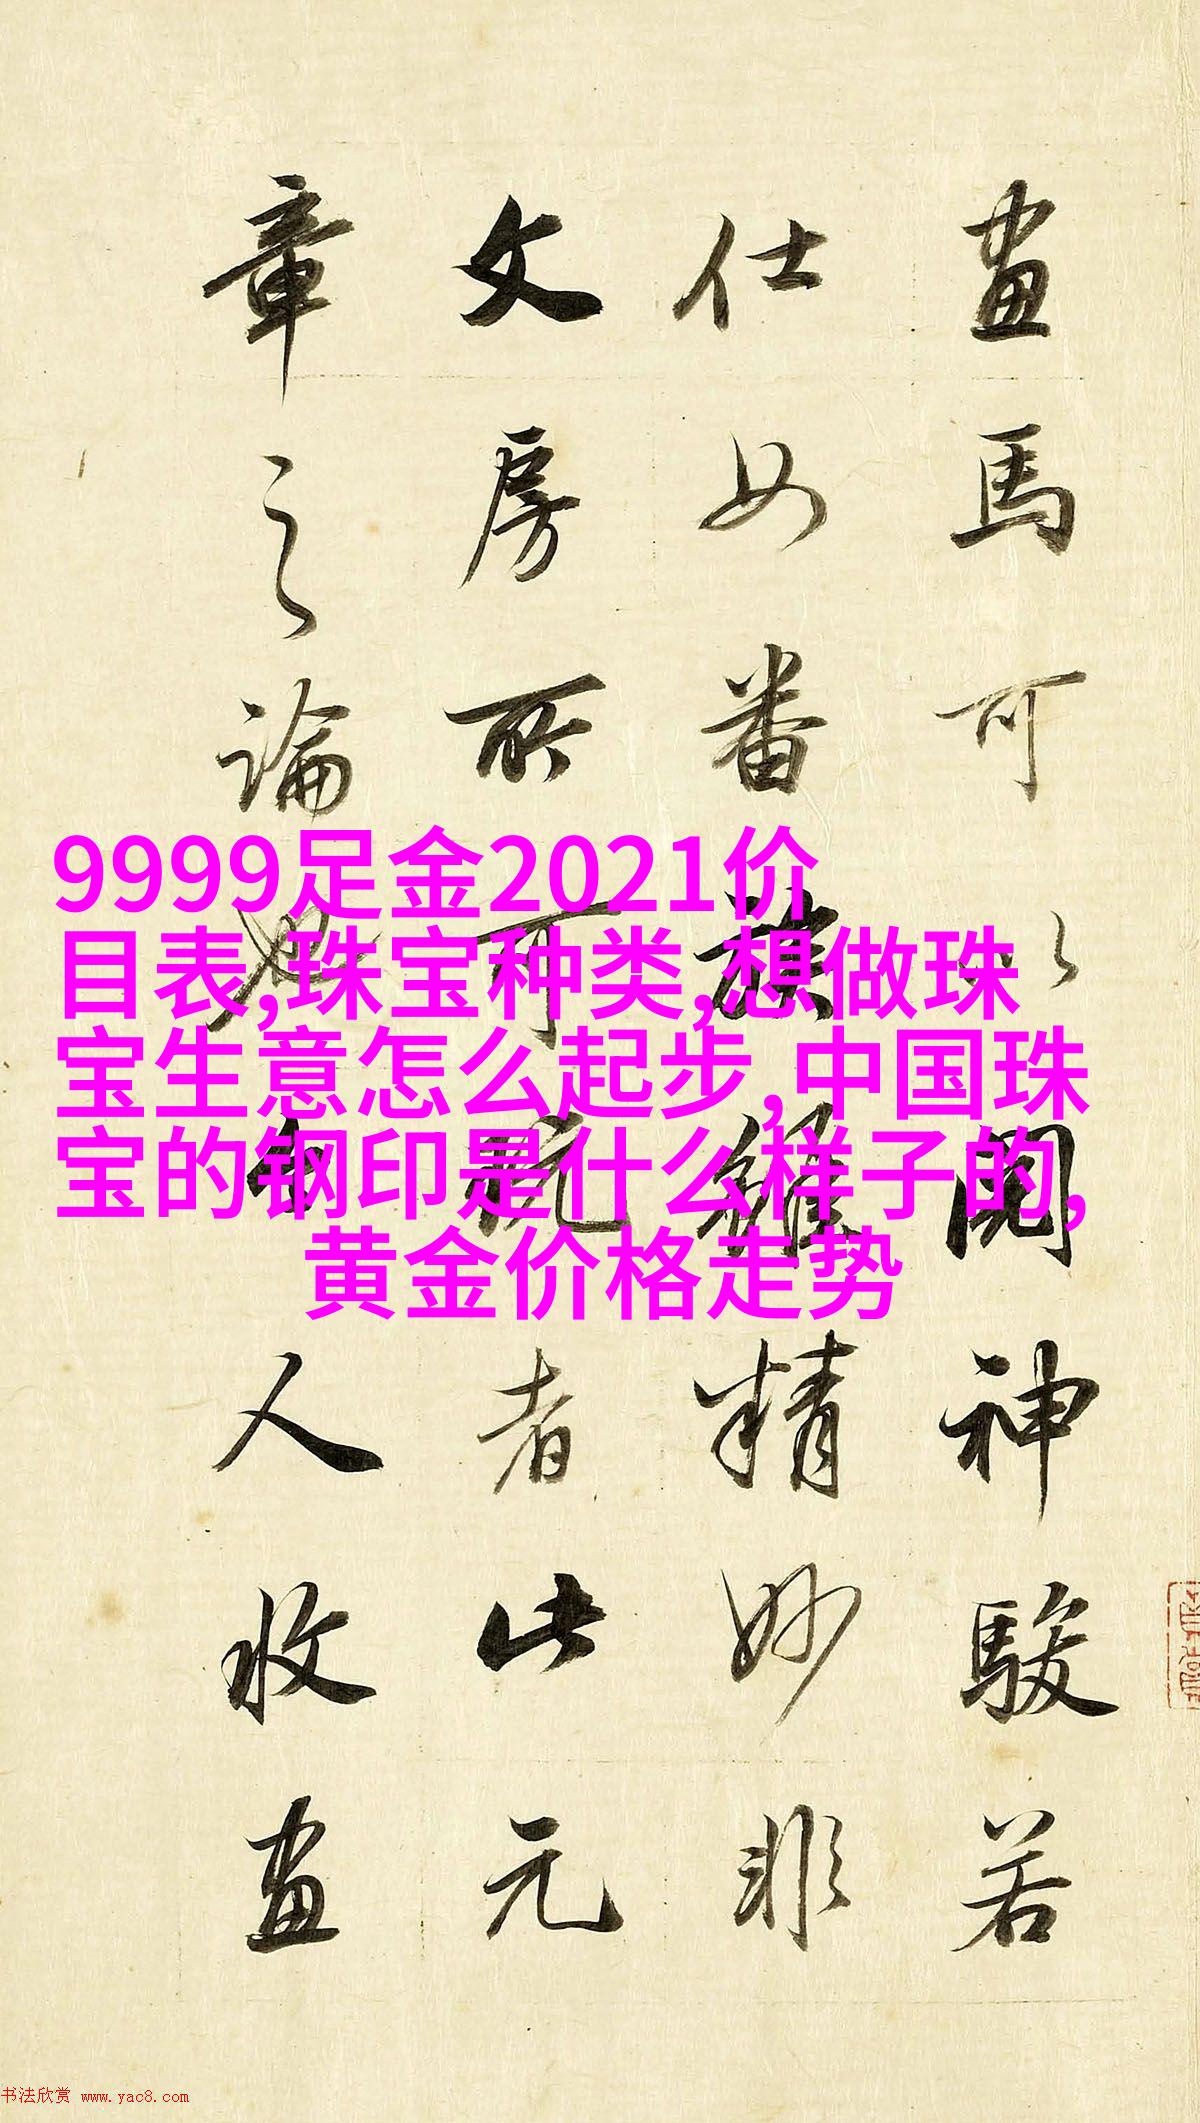 畫馬可以閱神駿若
仕女番族雖精妙非
文房所可玩者此元
章之論也今人收畫
9999足金2021价
目表,珠宝种类,想做珠
宝生意怎么起步,中国珠
宝的钢印是什么样子的,
黄金价格走势
书法欣赏 www.yac8.com